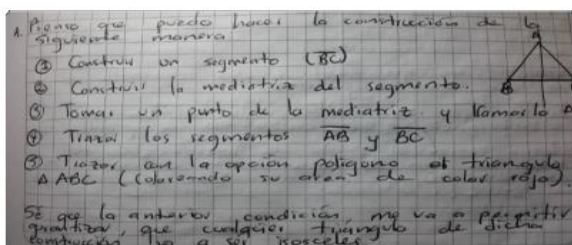 1. Pienso que puedo hacer la construcción de la
siguiente manera
① Construir un segmento (BC)
② Construir la mediatriz del segmento.
③ Tomar un punto de la mediatriz y llamarlo A
④ Trazar los segmentos AB y BC
⑤ Trazar con la opción polígono el triangulo
Δ ABC (coloreando su area de color rojo).
Sé que la anterior condición, me va a permitir
garantizar, que cualquier triángulo de dicha
construcción va a ser isosceles
A
B